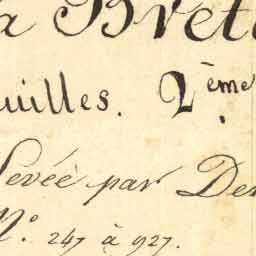 a Bret
uilles. 2ème
Levée par De
N.o 247 à 927.